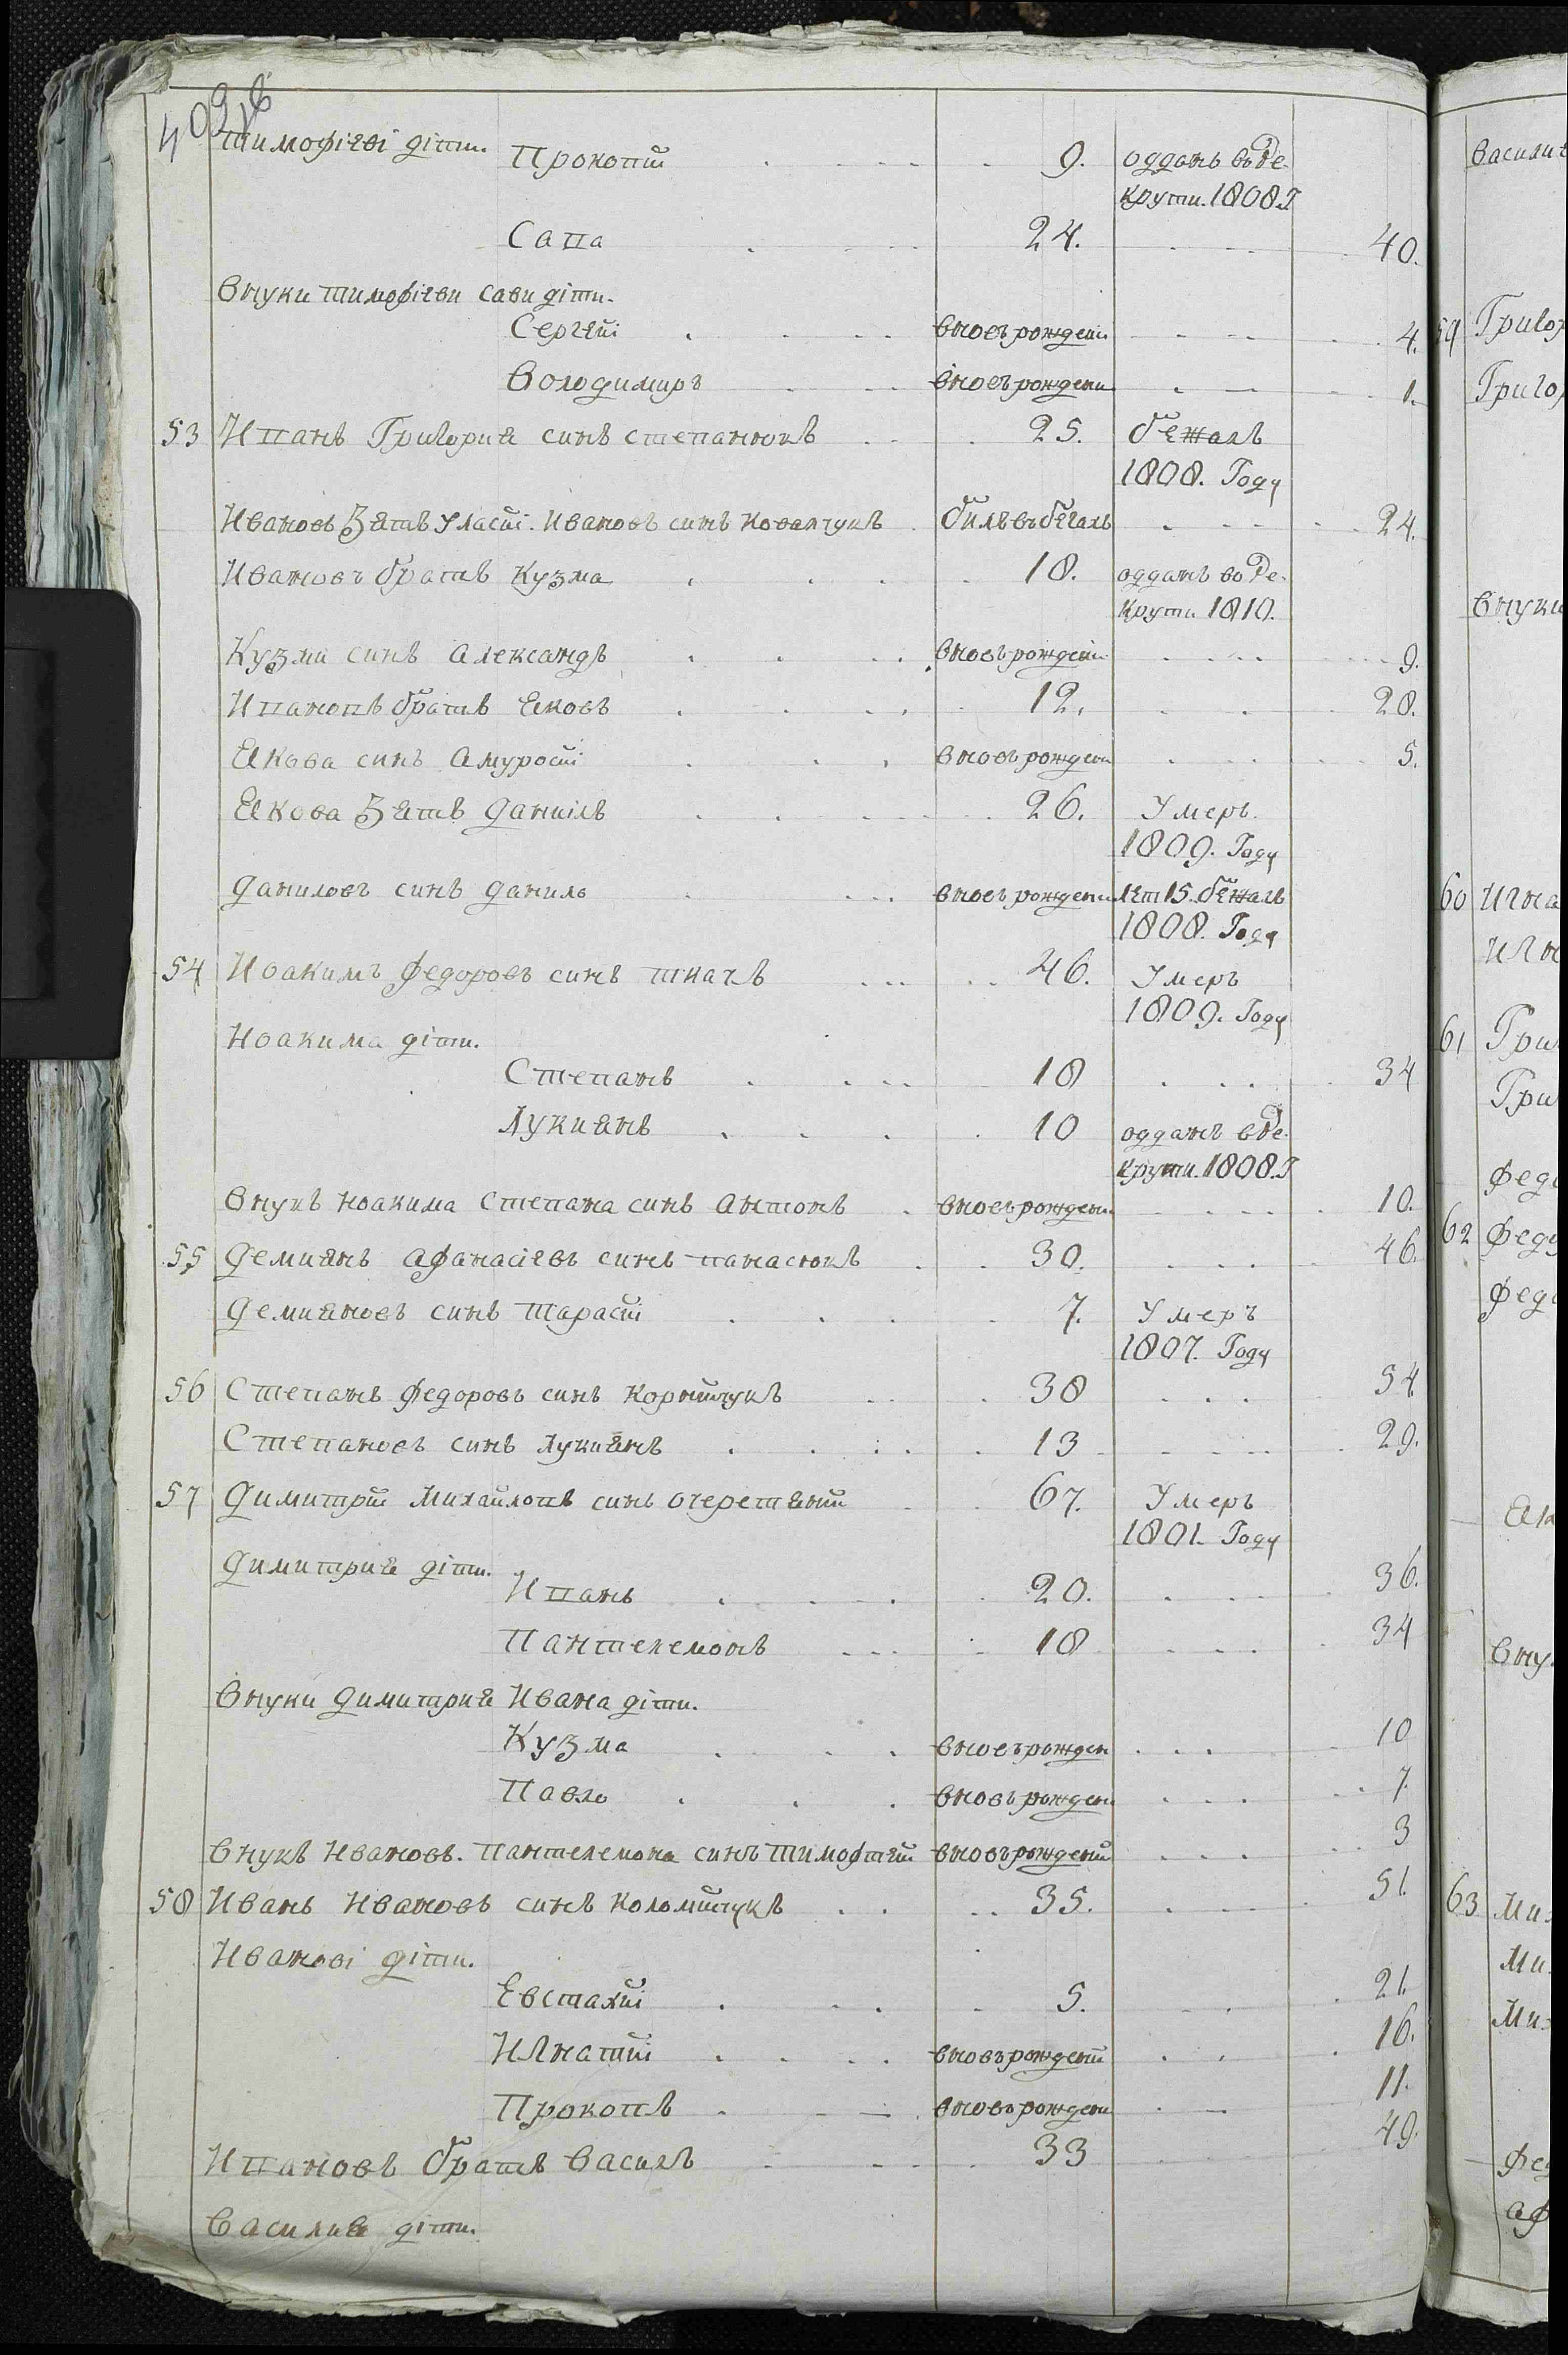 409 об
Тимофіеві діти.
Прокопій 9. отданъ въ Ре-
крути. 1808. Г
Сава 24. 40.
Внуки Тимофіеви Сави діти.
Сергѣй вновърожденъ 4.
Володимиръ вновърожденъ 1.
53 Иванъ Григория синъ Степанюкъ 25. бежалъ
1808. Году
Ивановъ Зять Уласій Ивановъ синъ Ковалчукъ билъ въ бегахъ 24.
Ивановъ братъ Кузма 18. отданъ во Ре-
крути 1810.
Кузми синъ Александъ вновърожденъ 9.
Ивановъ братъ Яковъ 12. 28.
Якова синъ Амуросій вновърожденъ 5.
Якова Зять Данилъ 26. Умеръ
1809. Году
Даниловъ синъ Данило вновърожденъ лет 15. бежалъ
1808. Году
54 Иоакимъ Федоровъ синъ Ткачъ 46. Умеръ
1809. Году
Иоакима діти.
Степанъ 18 34
Лукиянъ 10 отданъ в Ре-
крути. 1808. Г
Внукъ Иоакима Степана синъ Антонъ вновърожденъ 10.
55 Демиянъ Афанасіевъ синъ Панасюкъ 30. 46.
Демияновъ синъ Тарасій 7. Умеръ
1807. Году
56 Степанъ Федоровъ синъ Корнійчукъ 38 54
Степановъ синъ Лукиянъ 13 29.
57 Димитрій Михайловъ синъ Очеретяній 67. Умеръ
1801. Году
Димитрия діти.
Иванъ 20. 36.
Пантелемонъ 18 34
Внуки Димитрия Ивана діти.
Кузма вновърожден 10
Павло вновърожден 7.
Внукъ Ивановъ. Пантелемона синъ Тимофтей вновърожденій 3
58 Иванъ Ивановъ синъ Коломійчукъ 35. 51.
Иванові діти.
Евстахій 5. 21.
Игнатій вновърожденій 16.
Прокопъ вновърожденъ 11.
Ивановъ братъ Василъ 33 49.
Василия діти.
Васили
59 Григор
Григор
Внуки
60 Игна
Игн
61 Гри
Гри
Федо
62 Федо
Федо
Як
Вну
63 Ми
Ми
Ми
Фед
Аф